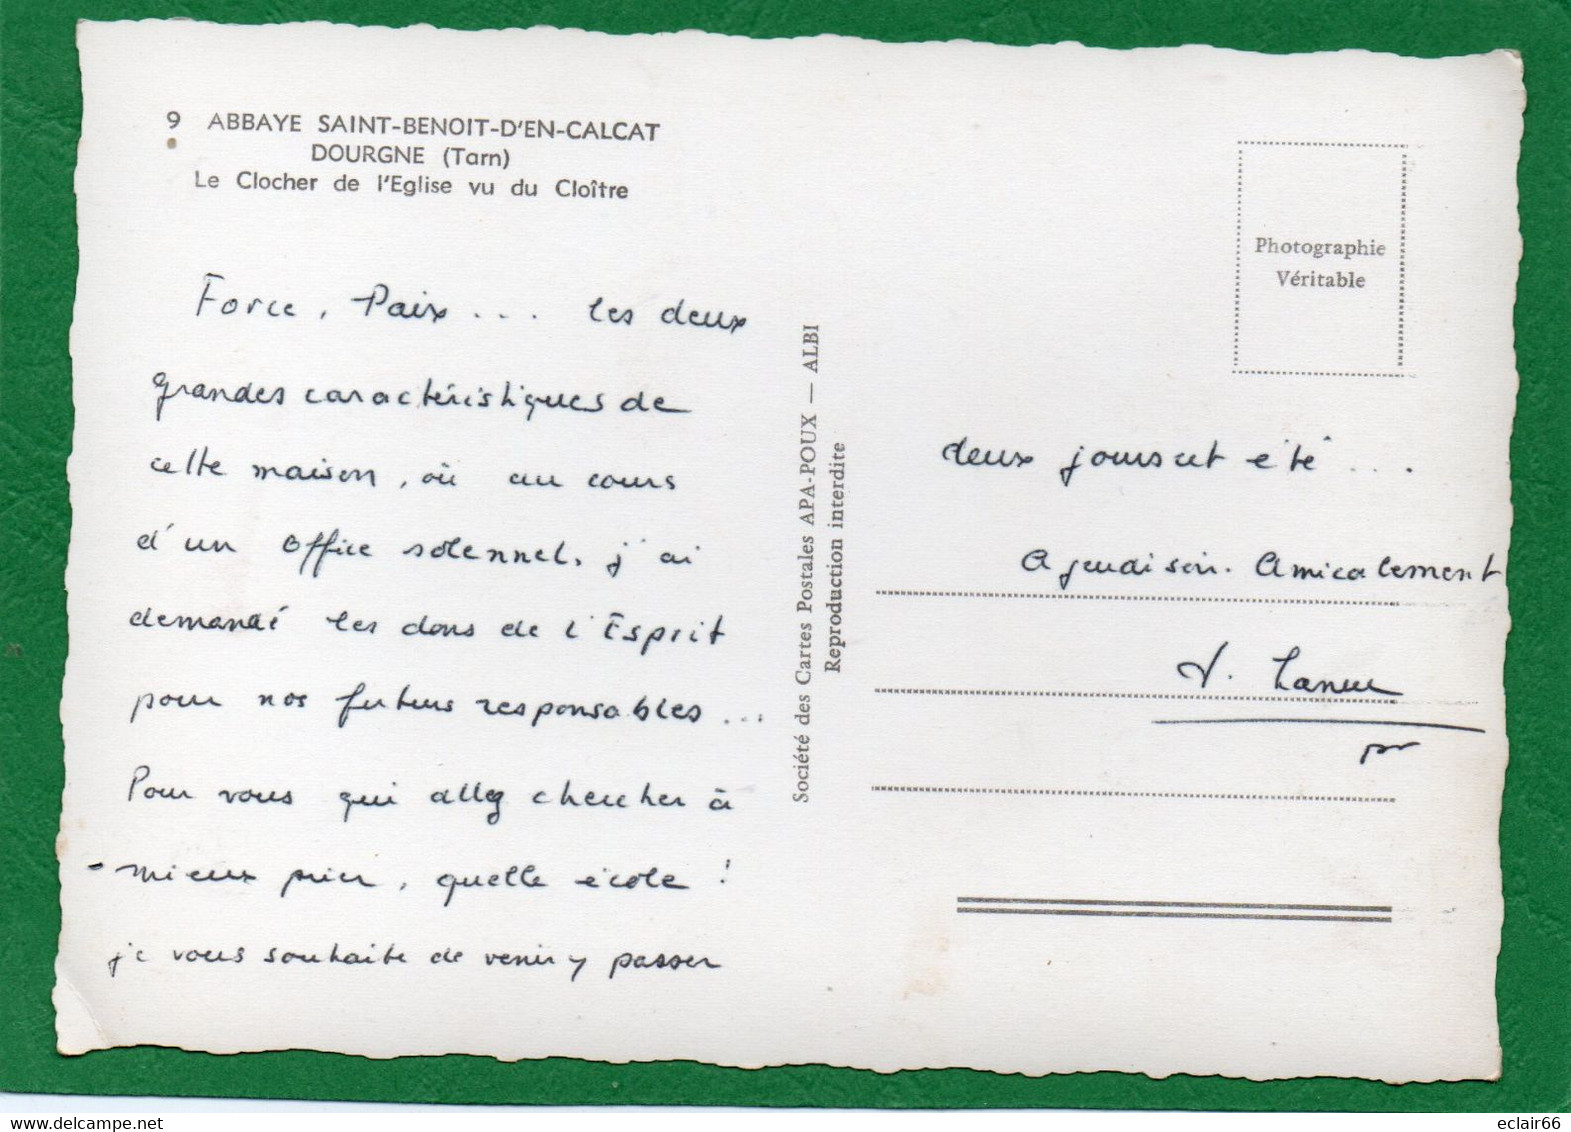 9 ABBAYE SAINT-BENOIT-D'EN-CALCAT
DOURGNE (Tarn)
Le Clocher de l'Eglise vu du Cloître
Photographie
Véritable
Force, Paix... les deux
grandes caractéristiques de
cette maison, où au cours
d'un office solennel, j'ai
demandé les dons de l'Esprit
pour nos futurs responsables...
Pour vous qui allez chercher à
mieux prier, quelle école !
je vous souhaite de venir y passer
Société des Cartes Postales APA-POUX — ALBI
Reproduction interdite
deux jours cet été...
A jeudi soir. Amicalement
eclair66